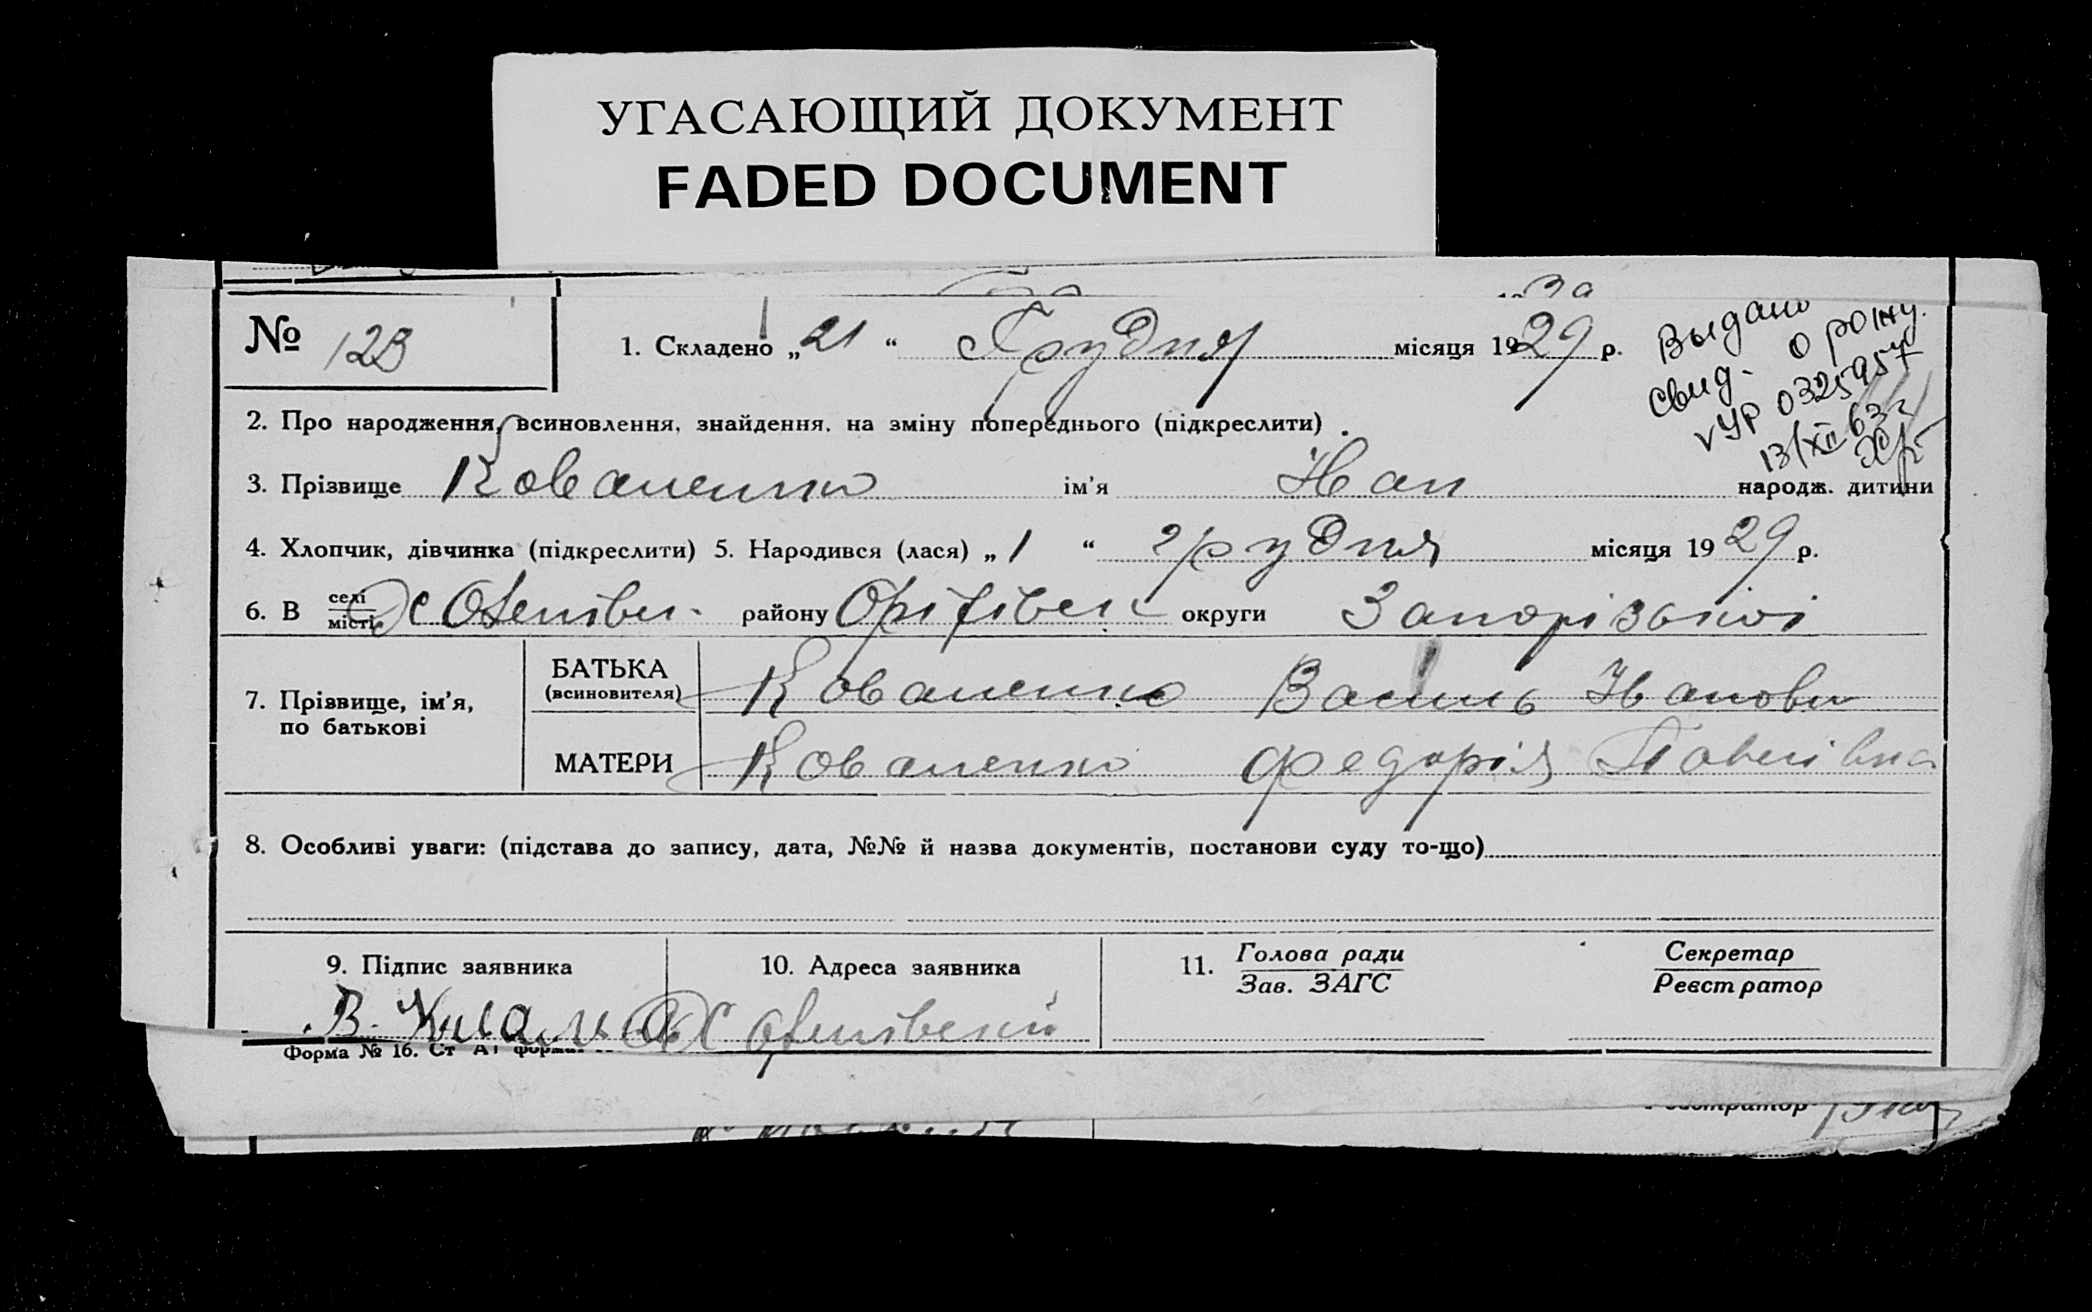 УГАСАЮЩИЙ ДОКУМЕНТ
FADED DOCUMENT
№ 123
1. Складено „21“ Грудня місяця 1929 р.
Выдано
свид. о рожд.
УР 0325957
13/XII 63 г
2. Про народження, всиновлення, знайдення, на зміну попереднього (підкреслити).
3. Прізвище Коваленко ім'я Іван народж. дитини
4. Хлопчик, дівчинка (підкреслити) 5. Народився (лася) „1“ грудня місяця 1929 р.
6. В селі місті району Оріхівськ округи Запорізької
7. Прізвище, ім'я, по батькові
БАТЬКА (всиновителя) Коваленко Василь Іванович
МАТЕРИ Коваленко Федорія Павлівна
8. Особливі уваги: (підстава до запису, дата, №№ й назва документів, постанови суду то-що)
9. Підпис заявника 10. Адреса заявника 11. Голова ради Зав. ЗАГС Секретар Реєстратор
В.
Форма № 16. Ст